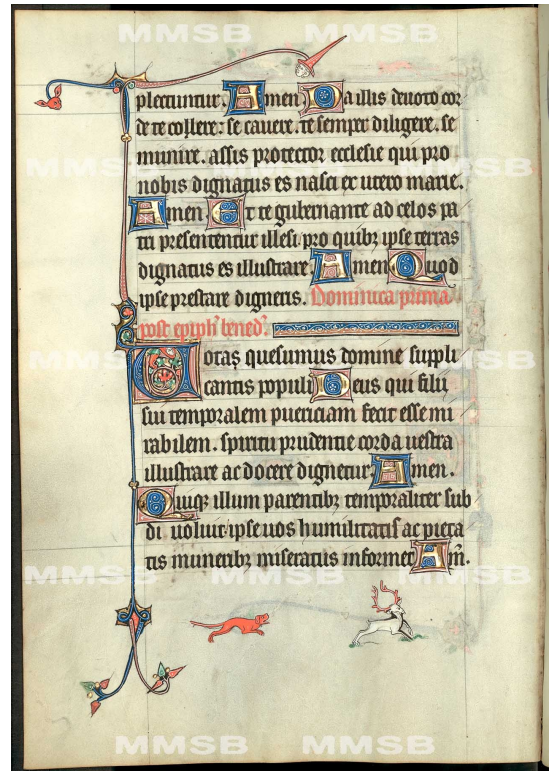 plectuntur. Amen Da illis deuoto cor
de te collere: se cauere. te semper diligere. se
munire. assis protector ecclesie qui pro
nobis dignatus es nasci ex utero marie.
Amen Et te gubernante ad celos pa
tri presententur illesi pro quibȝ ipse terras
dignatus es illustrare Amen Quod
ipse prestare digneris. Dominica prima
post epiph' bened'.
Uotaꝫ quesumus domine suppli
cantis populi Deus qui filii
sui temporalem puericiam fecit esse mi
rabilem. spiritu prudentie corda uestra
illustrare ac docere dignetur. Amen.
Quiqꝫ illum parentibȝ temporaliter sub
di uoluit ipse uos humilitatis ac pieta
tis muneribȝ miseratus informet Am̄.
MMSB